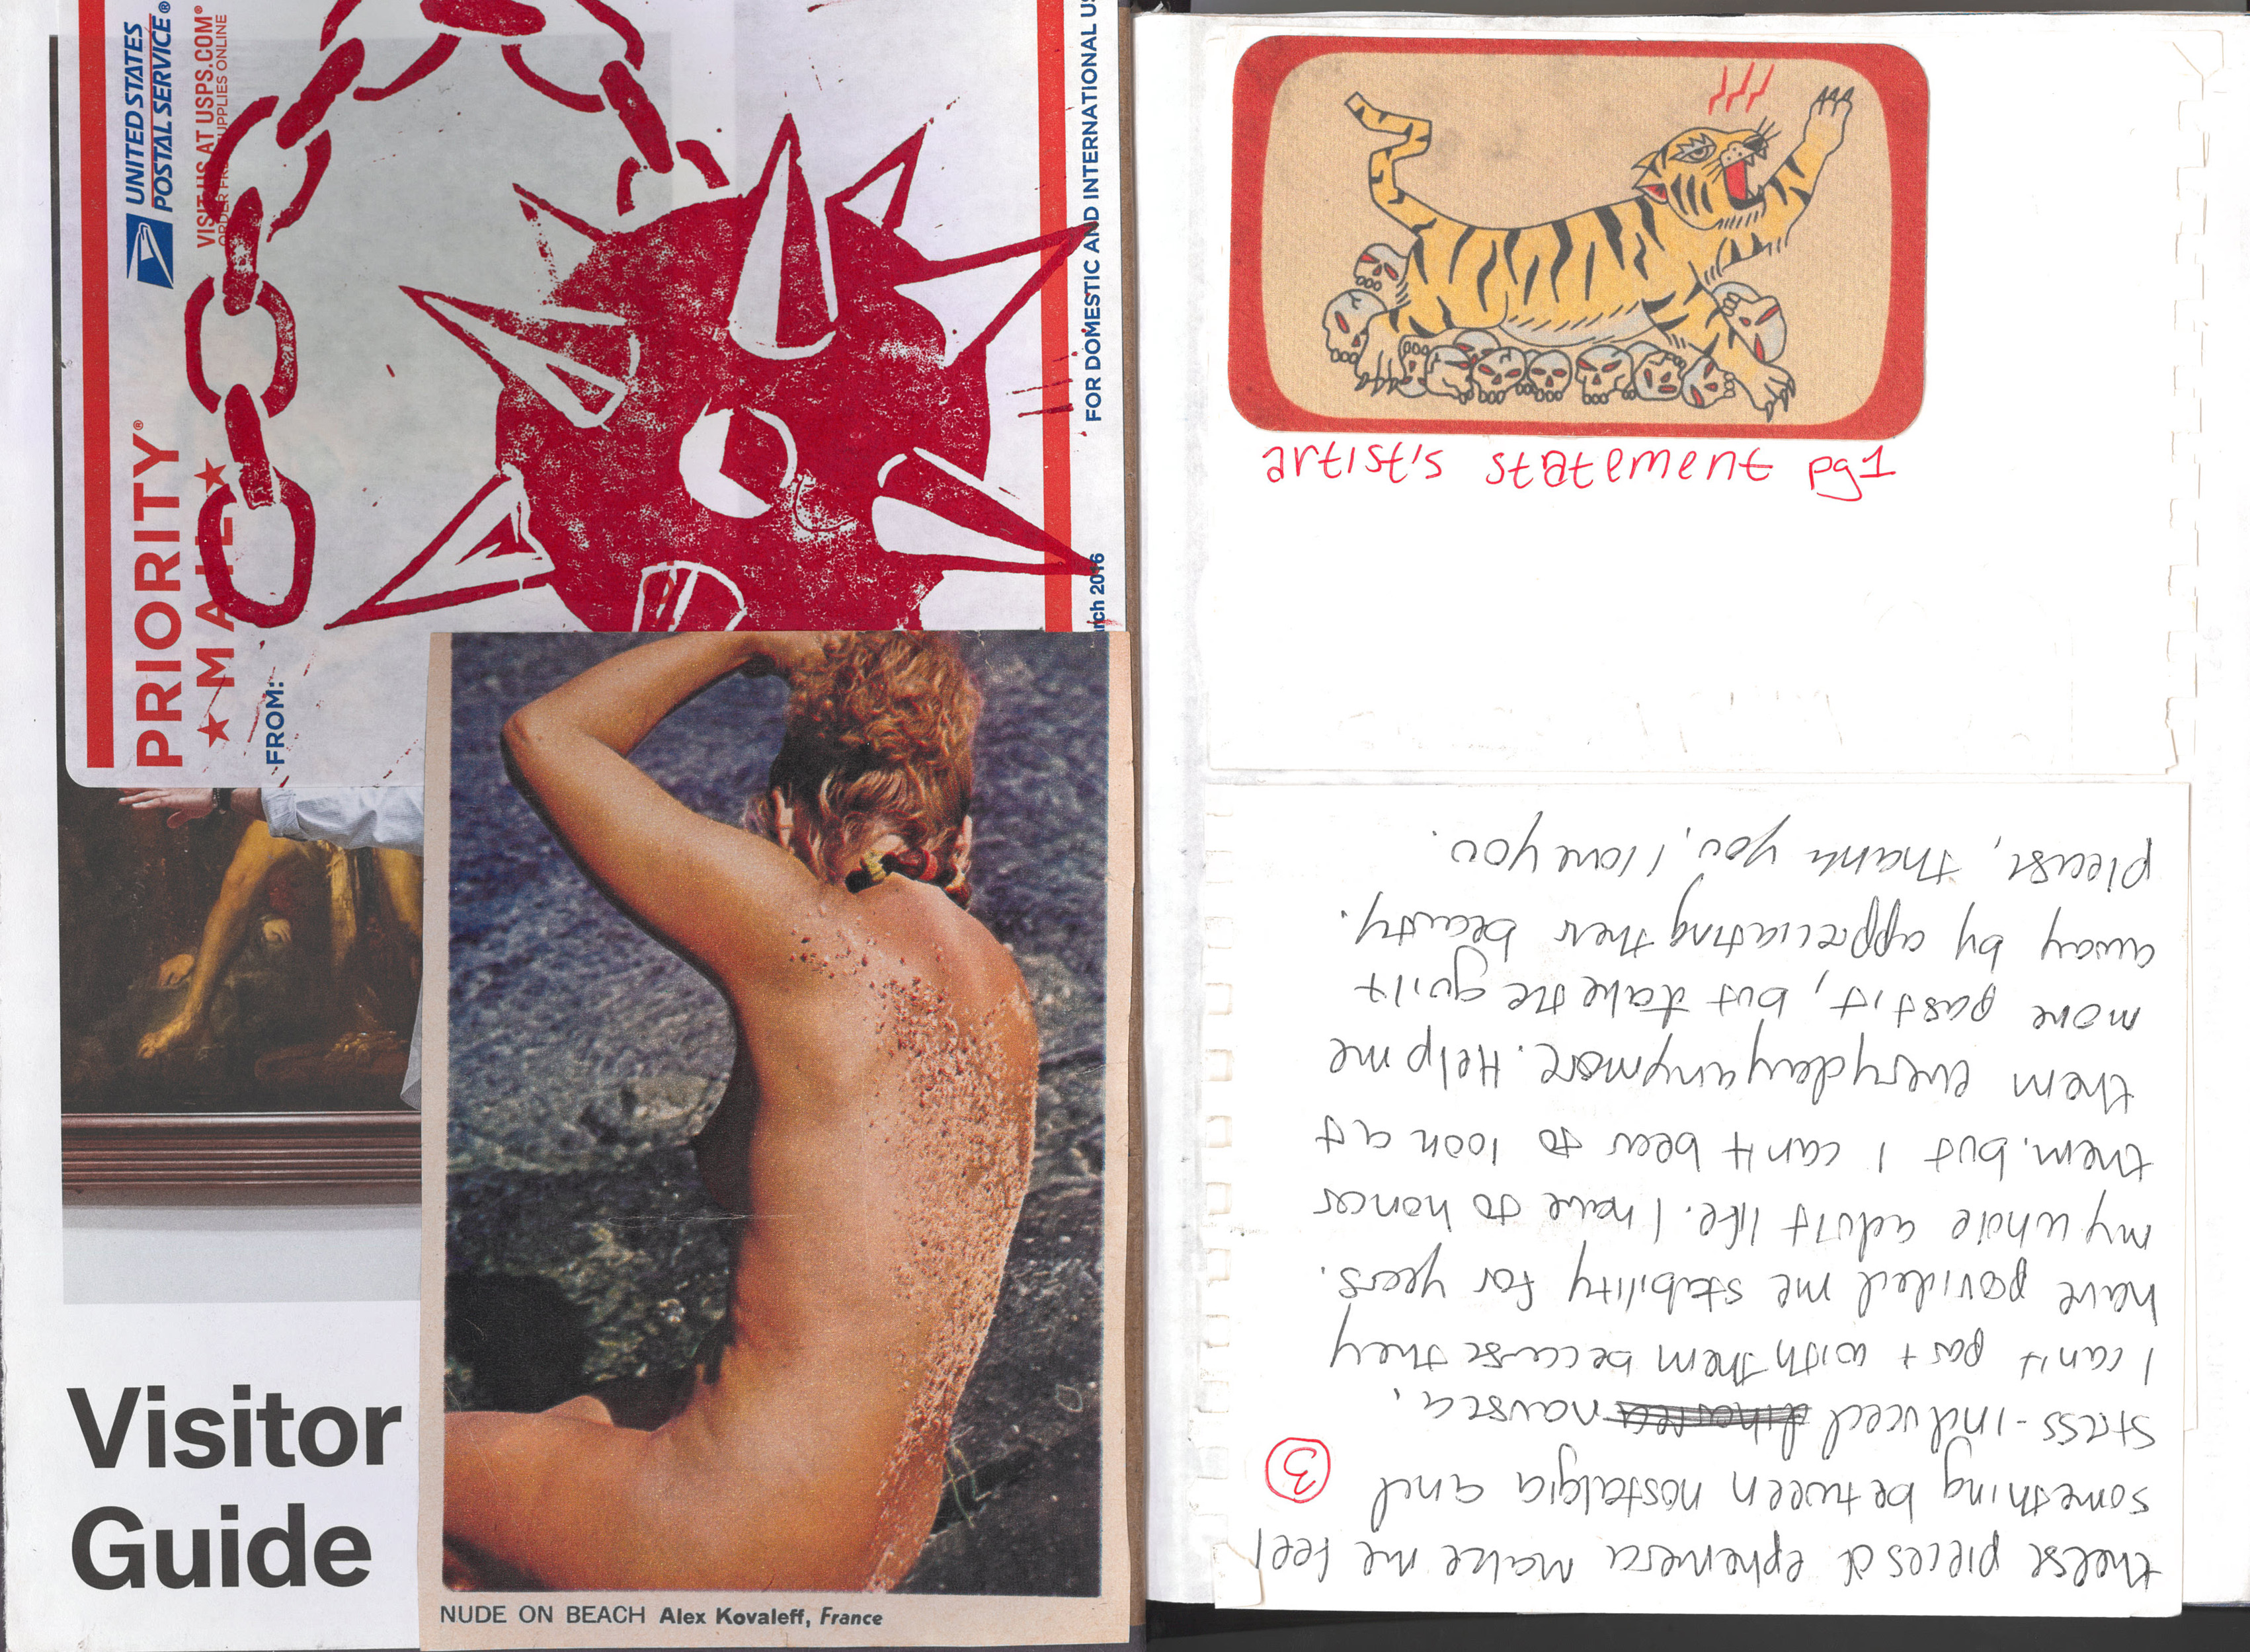 UNITED STATES
POSTAL SERVICE®
VISIT US AT USPS.COM®
ORDER FREE SUPPLIES ONLINE
PRIORITY®
★ MAIL ★
FROM:
FOR DOMESTIC AND INTERNATIONAL US
rch 2016
Visitor
Guide
NUDE ON BEACH Alex Kovaleff, France
artist's statement pg1
these pieces of ephemera make me feel
something between nostalgia and
3
stress-induced nausea.
I can't part with them because they
have provided me stability for years.
my whole adult life. I have to honor
them. but I can't bear to look at
them everyday anymore. Help me
move past it, but take the guilt
away by appreciating their beauty.
please, thank you, I love you.